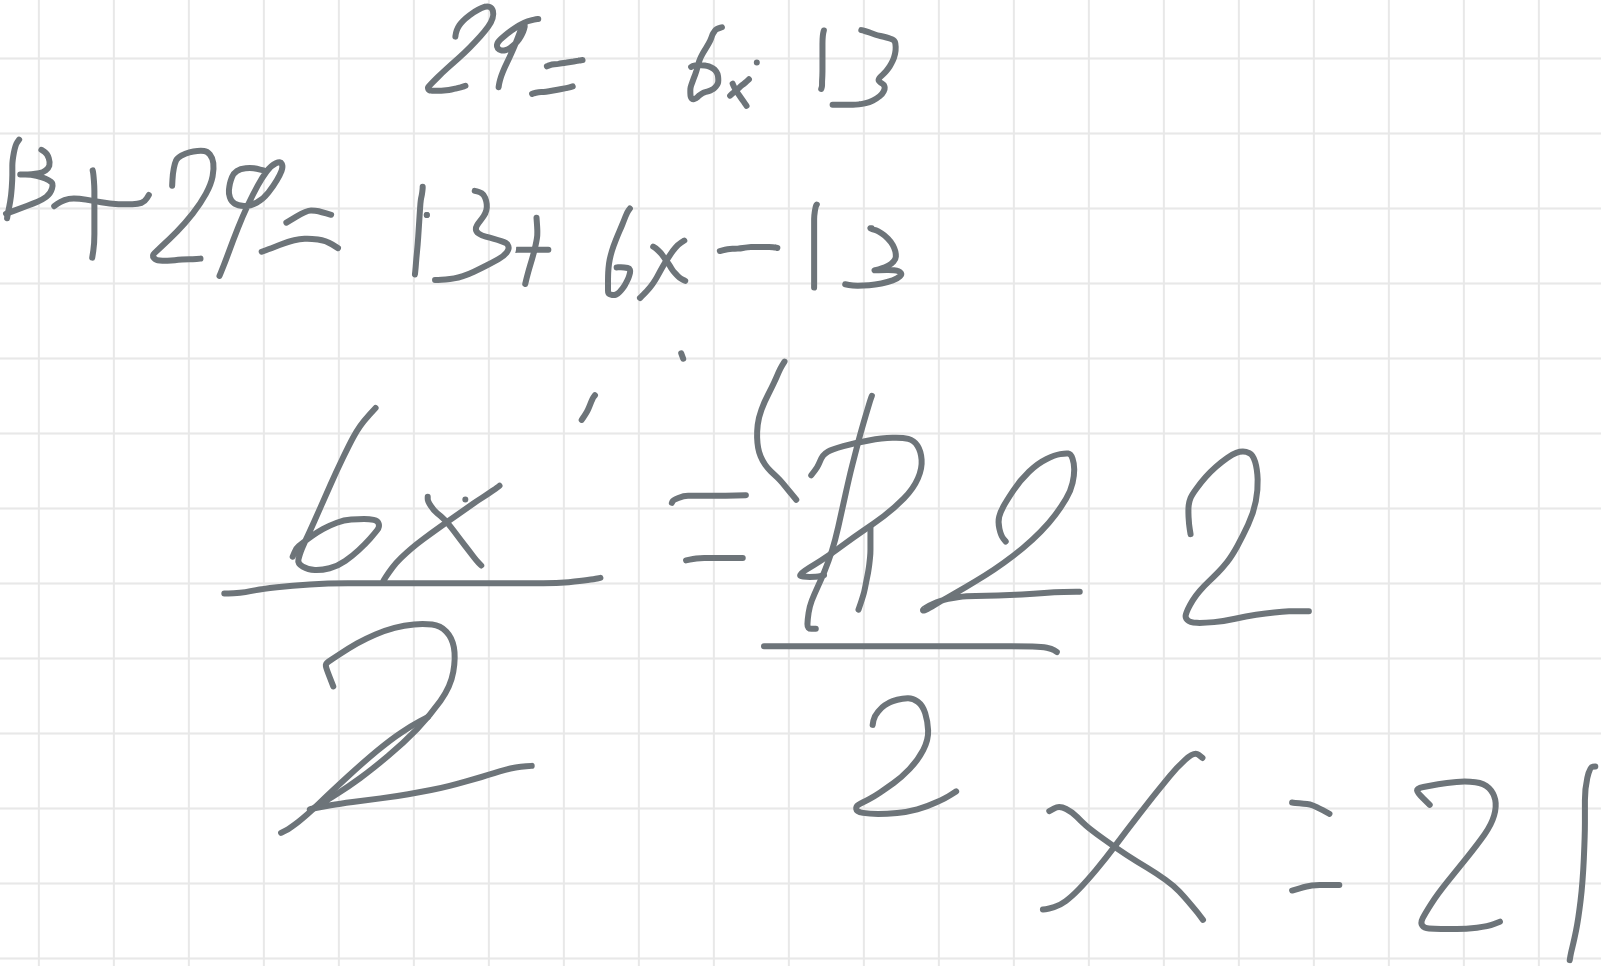 29 = 6x 13
13 + 29 = 13 + 6x - 13
6x = 22 2
2 2
x = 21